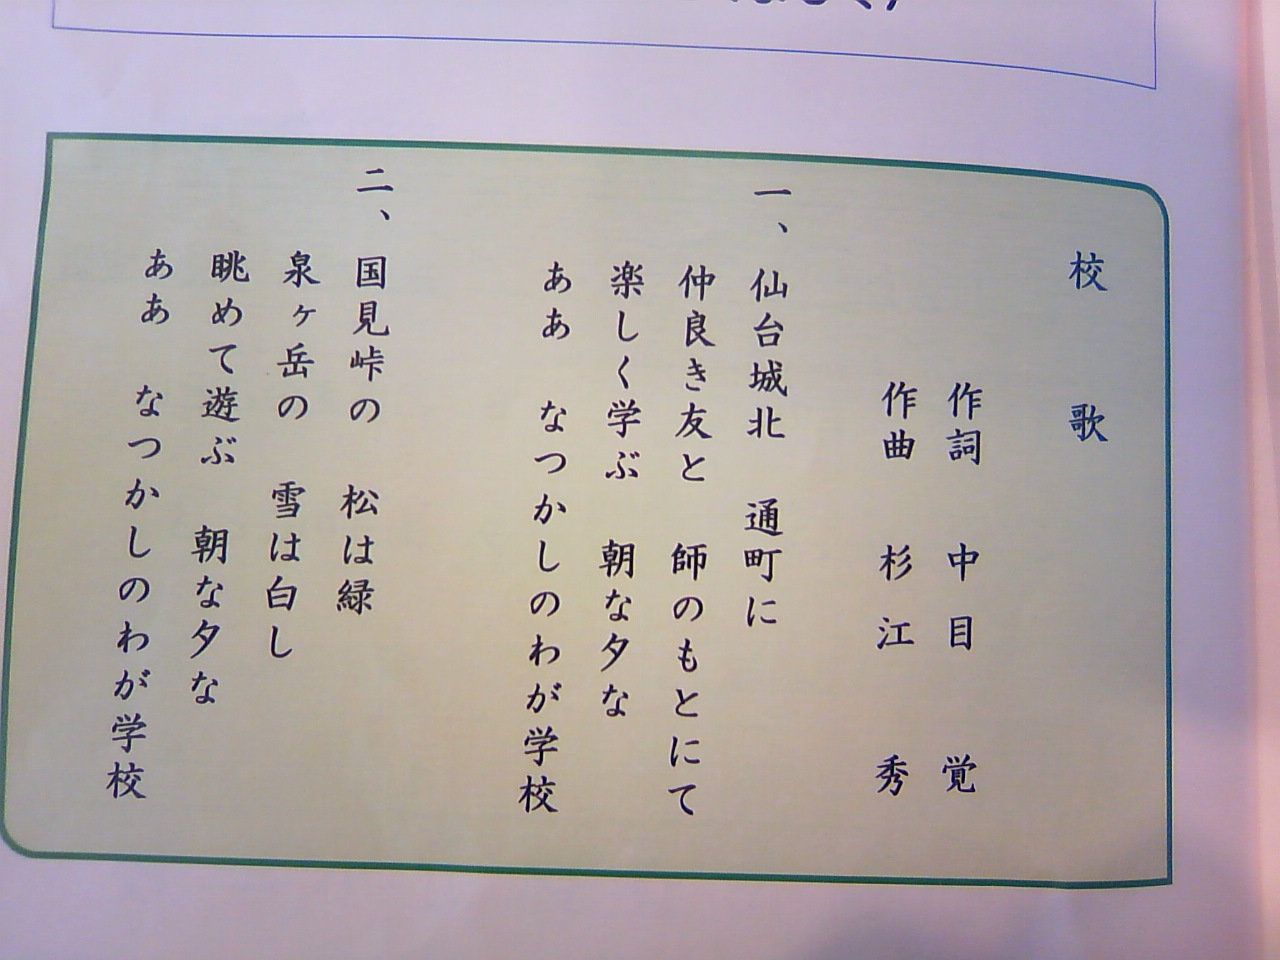 校歌
作詞 中目 覚
作曲 杉江 秀
一、仙台城北 通町に
仲良き友と 師のもとにて
楽しく学ぶ 朝な夕な
ああ なつかしのわが学校
二、国見峠の 松は緑
泉ヶ岳の 雪は白し
眺めて遊ぶ 朝な夕な
ああ なつかしのわが学校